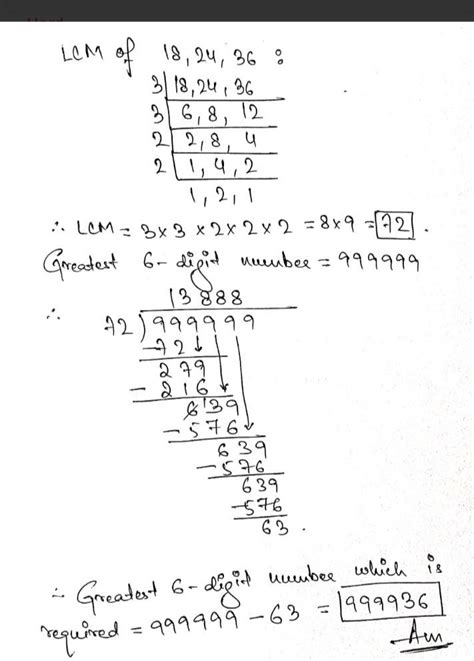 LCM of 18, 24, 36 :
3 | 18, 24, 36
3 | 6, 8, 12
2 | 2, 8, 4
2 | 1, 4, 2
1, 2, 1
∴ LCM = 3 × 3 × 2 × 2 × 2 = 8 × 9 = 72 .
Greatest 6 - digit number = 999999
13888
∴ 72 ) 999999
- 72
279
- 216
639
- 576
639
- 576
639
- 576
63 .
∴ Greatest 6 - digit number which is
required = 999999 - 63 = 999936
Ans